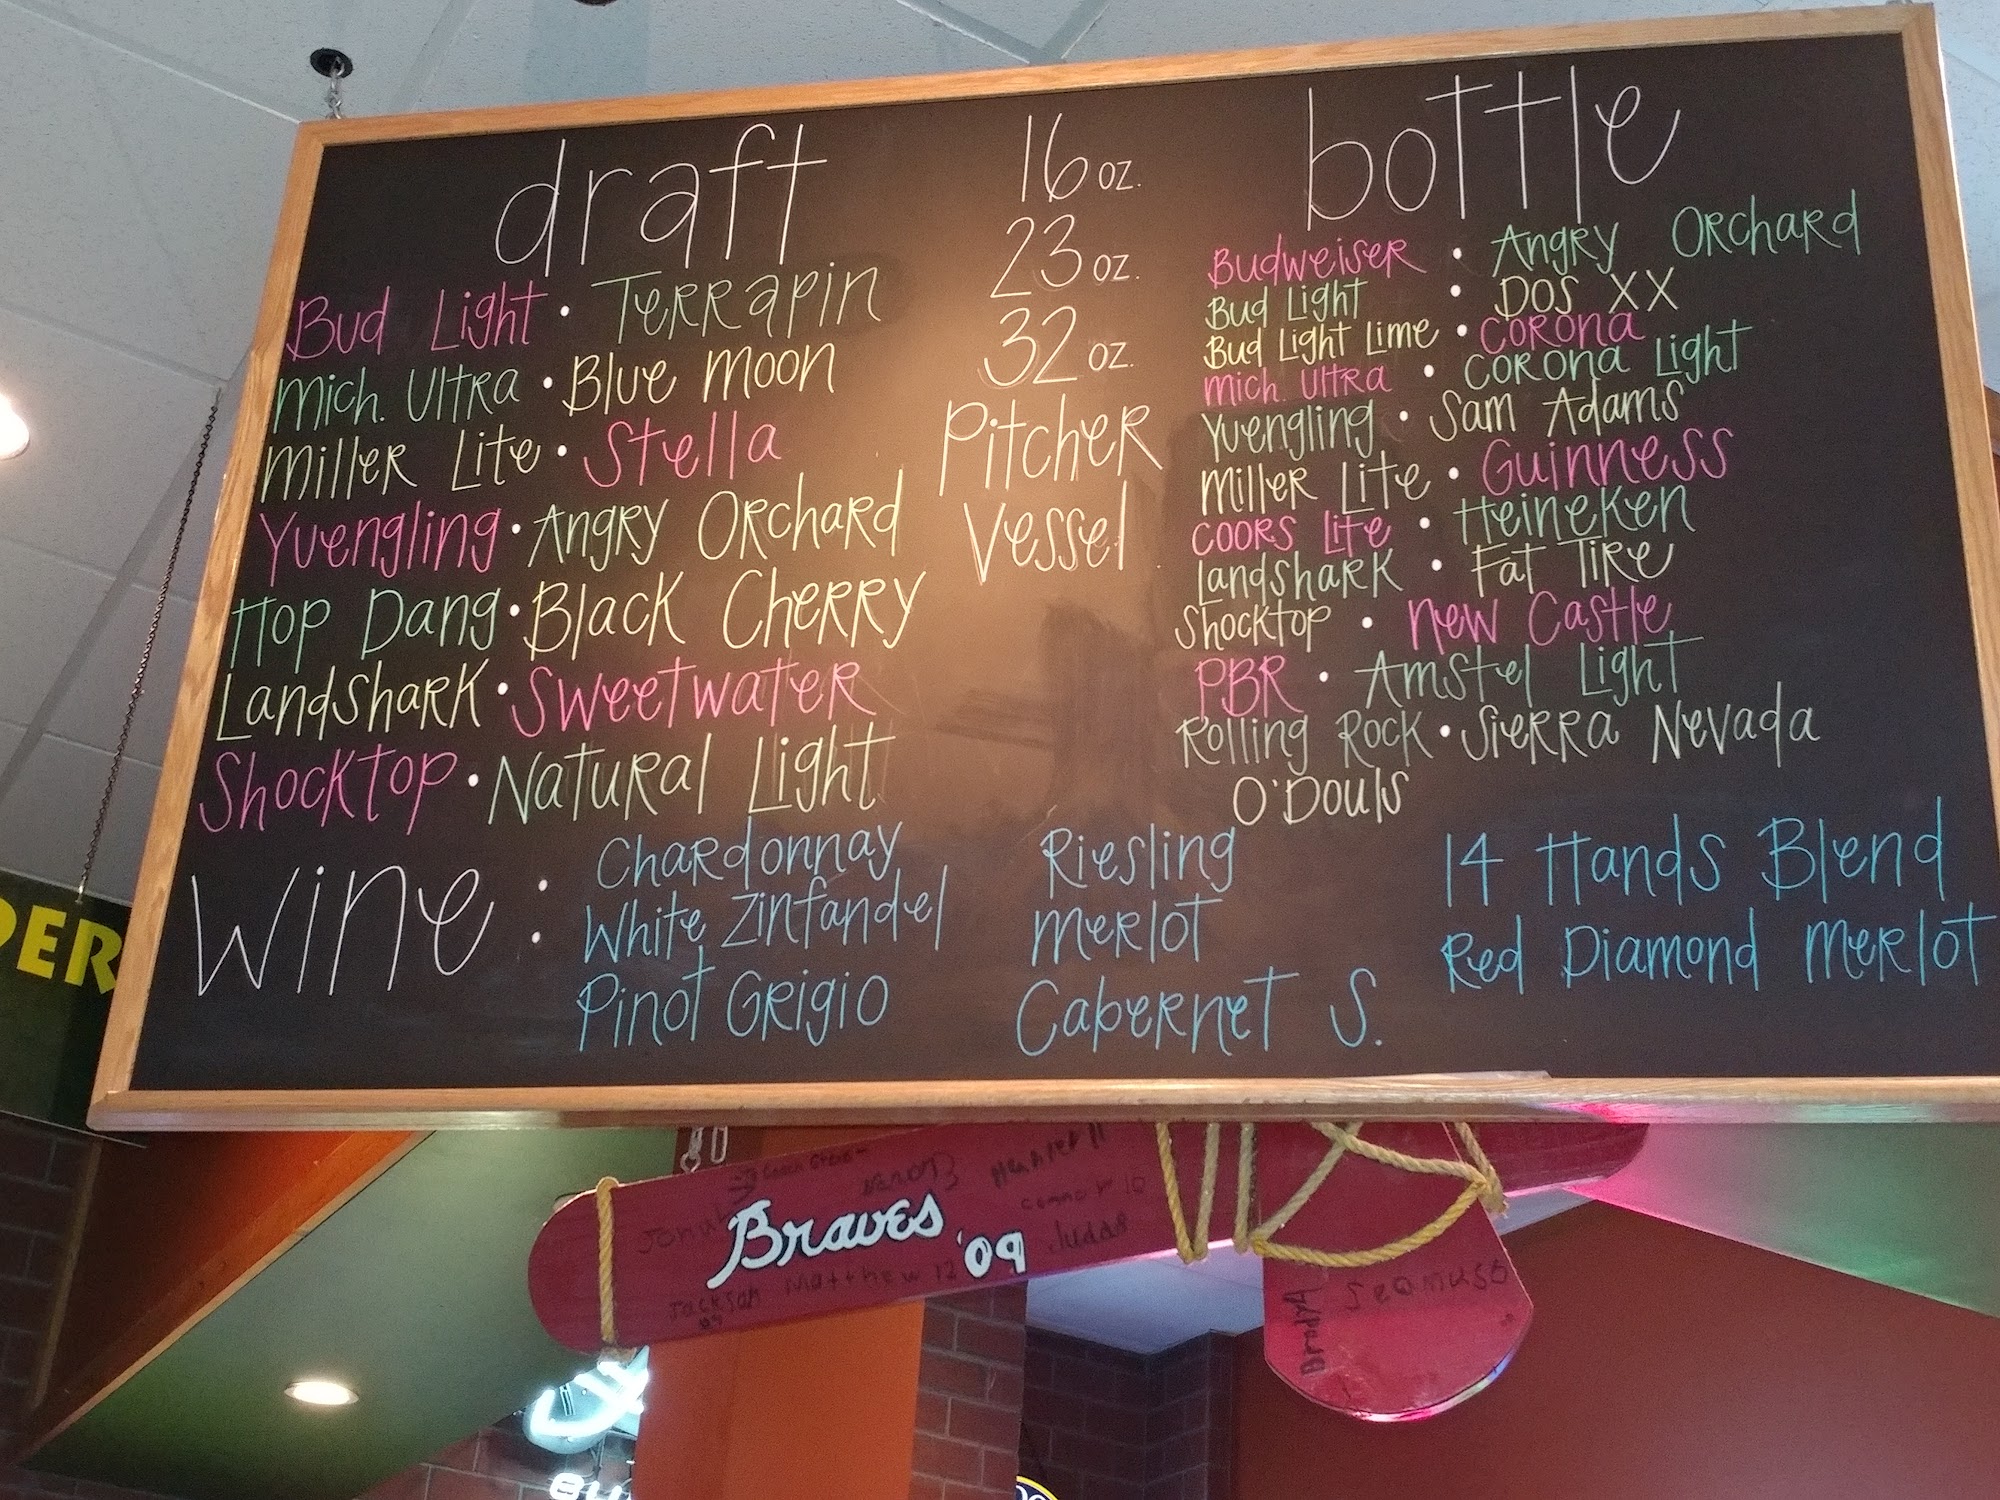 draft
Bud Light • Terrapin
Mich. Ultra • Blue Moon
Miller Lite • Stella
Yuengling • Angry Orchard
Hop Dang • Black Cherry
Landshark • Sweetwater
Shocktop • Natural Light
16 oz.
23 oz.
32 oz.
Pitcher
Vessel
bottle
Budweiser • Angry Orchard
Bud Light • DOS XX
Bud Light Lime • Corona
Mich. Ultra • Corona Light
Yuengling • Sam Adams
Miller Lite • Guinness
Coors Lite • Heineken
Landshark • Fat Tire
Shocktop • New Castle
PBR • Amstel Light
Rolling Rock • Sierra Nevada
O'Douls
wine :
Chardonnay
White Zinfandel
Pinot Grigio
Riesling
Merlot
Cabernet S.
14 Hands Blend
Red Diamond Merlot
DER
Braves '09
Matthew 12
Jackson
Judas
Seamus
Bradly